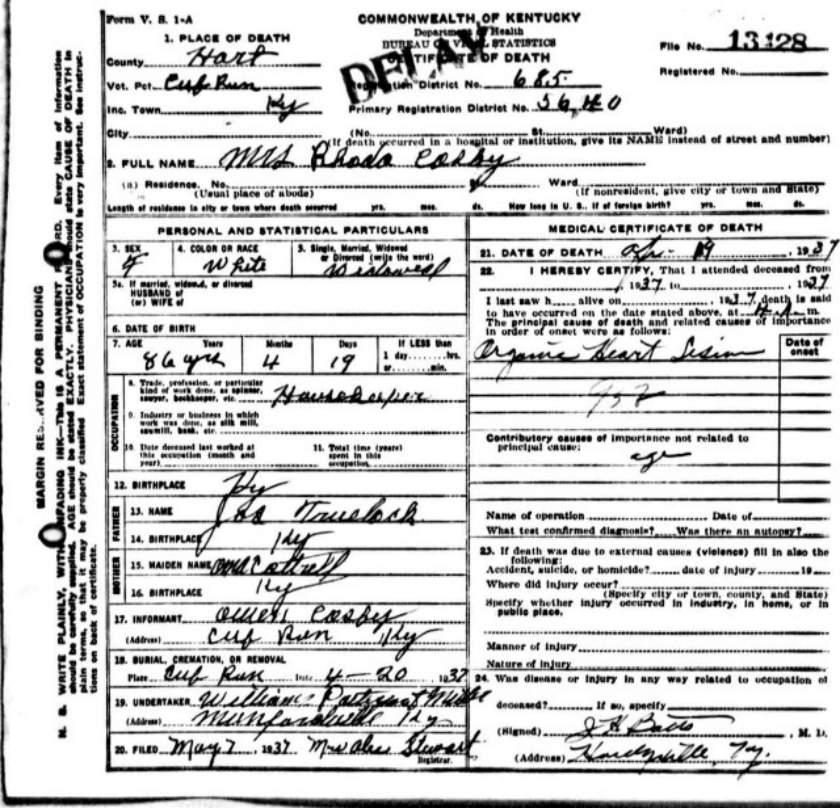 Form V. S. 1-A
COMMONWEALTH OF KENTUCKY
Department of Health
BUREAU OF VITAL STATISTICS
CERTIFICATE OF DEATH
DELAY
File No. 13128
Registered No.
1. PLACE OF DEATH
County Hart
Vot. Pct. Cub Run
Registration District No. 685
Inc. Town Ky
Primary Registration District No. 5640
City (No. St. Ward)
(If death occurred in a hospital or institution, give its NAME instead of street and number)
2. FULL NAME Mrs Rhoda Cosby
(a) Residence. No. Ward
(Usual place of abode) (If nonresident, give city or town and State)
Length of residence in city or town where death occurred yrs. mos. ds. How long in U. S., if of foreign birth? yrs. mos. ds.
PERSONAL AND STATISTICAL PARTICULARS
3. SEX F
4. COLOR OR RACE White
5. Single, Married, Widowed or Divorced (write the word) Widowed
5a. If married, widowed, or divorced
HUSBAND of
(or) WIFE of
6. DATE OF BIRTH
7. AGE Years Months Days If LESS than
86 yrs 4 19 1 day hrs.
or min.
OCCUPATION
8. Trade, profession, or particular
kind of work done, as spinner,
sawyer, bookkeeper, etc. Housekeeper
9. Industry or business in which
work was done, as silk mill,
sawmill, bank, etc.
10. Date deceased last worked at
this occupation (month and
year)
11. Total time (years)
spent in this
occupation
12. BIRTHPLACE Ky
FATHER
13. NAME Truelock
14. BIRTHPLACE Ky
MOTHER
15. MAIDEN NAME Cottrell
16. BIRTHPLACE Ky
17. INFORMANT Owen Cosby
(Address) Cub Run Ky
18. BURIAL, CREMATION, OR REMOVAL
Place Cub Run Date 4-20 1937
19. UNDERTAKER Williams
(Address) Munfordville Ky
20. FILED May 7 1937 Stewart
Registrar.
MEDICAL CERTIFICATE OF DEATH
21. DATE OF DEATH 19, 1937
22. I HEREBY CERTIFY, That I attended deceased from
, 1937 to , 1937
I last saw h alive on , 1937 death is said
to have occurred on the date stated above, at m.
The principal cause of death and related causes of importance
in order of onset were as follows:
Date of onset
Organic Heart Lesion
Contributory causes of importance not related to
principal cause:
age
Name of operation Date of
What test confirmed diagnosis? Was there an autopsy?
23. If death was due to external causes (violence) fill in also the
following:
Accident, suicide, or homicide? date of injury 19
Where did injury occur?
(Specify city or town, county, and State)
Specify whether injury occurred in industry, in home, or in
public place.
Manner of injury
Nature of injury
24. Was disease or injury in any way related to occupation of
deceased? If so, specify
(Signed) , M. D.
(Address) Hardyville, Ky.
MARGIN RESERVED FOR BINDING
N. B. WRITE PLAINLY, WITH UNFADING INK—This IS A PERMANENT RECORD. Every item of information
should be carefully supplied. AGE should be stated EXACTLY. PHYSICIANS should state CAUSE OF DEATH in
plain terms, so that it may be properly classified. Exact statement of OCCUPATION is very important. See instruc-
tions on back of certificate.